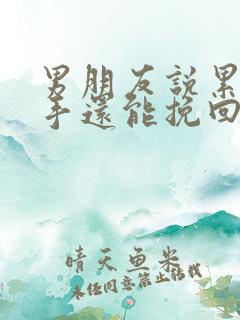 男朋友說累
手還能挽回
晴天鱼米
未经同意禁止转载